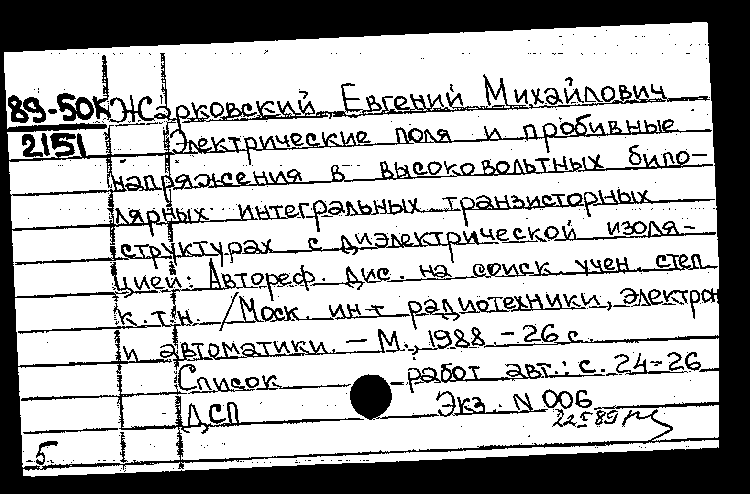 89-50К Жарковский Евгений Михайлович
2151 Электрические поля и пробивные
напряжения в высоковольтных бипо-
лярных интегральных транзисторных
структурах с диэлектрической изоля-
цией: Автореф. дис. на соиск. учен. степ.
к.т.н. /Моск. ин-т радиотехники, электрон
и автоматики. - М., 1988. - 26 с.
Список работ авт.: с. 24-26
ДСП Экз. N 006
5